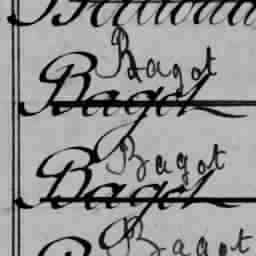 Bagot
Bagot
Bagot
Bagot
Bagot